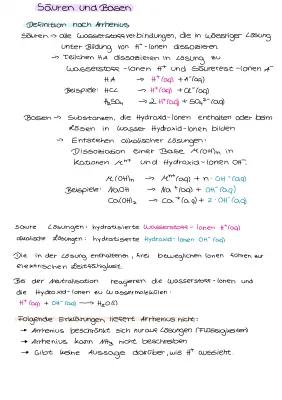 Säuren und Basen
Definition nach Arrhenius
Säuren → alle Wasserstoffverbindungen, die in wässriger Lösung
unter Bildung von H⁺-Ionen dissoziieren.
→ Teilchen HA dissoziieren in Lösung zu
Wasserstoff-Ionen H⁺ und Säurerest-Ionen A⁻
HA → H⁺(aq) + A⁻(aq)
Beispiele: HCl → H⁺(aq) + Cl⁻(aq)
H₂SO₄ → 2 H⁺(aq) + SO₄²⁻(aq)
Basen → Substanzen, die Hydroxid-Ionen enthalten oder beim
Lösen in Wasser Hydroxid-Ionen bilden
→ Entstehen alkalischer Lösungen:
Dissoziation einer Base M(OH)ₙ in
Kationen Mⁿ⁺ und Hydroxid-Ionen OH⁻
M(OH)ₙ → Mⁿ⁺(aq) + n · OH⁻(aq)
Beispiele: NaOH → Na⁺(aq) + OH⁻(aq)
Ca(OH)₂ → Ca²⁺(aq) + 2 · OH⁻(aq)
saure Lösungen: hydratisierte Wasserstoff-Ionen H⁺(aq)
alkalische Lösungen: hydratisierte Hydroxid-Ionen OH⁻(aq)
Die in der Lösung enthaltenen, frei beweglichen Ionen führen zur
elektrischen Leitfähigkeit.
Bei der Neutralisation reagieren die Wasserstoff-Ionen und
die Hydroxid-Ionen zu Wassermolekülen:
H⁺(aq) + OH⁻(aq) → H₂O(l)
Folgende Erklärungen liefert Arrhenius nicht:
→ Arrhenius beschränkt sich nur auf Lösungen (Flüssigkeiten)
→ Arrhenius kann NH₃ nicht beschreiben
→ Gibt keine Aussage darüber, wie H⁺ aussieht.